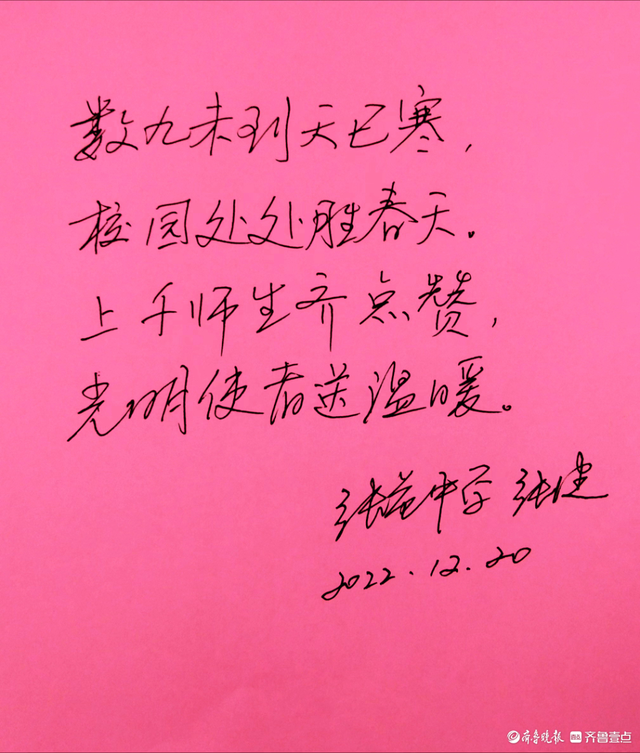 数九未到天已寒，
校园处处胜春天。
上千师生齐点赞，
光明使者送温暖。
张夏中学 张建
2022.12.20
齐鲁晚报 齐鲁壹点